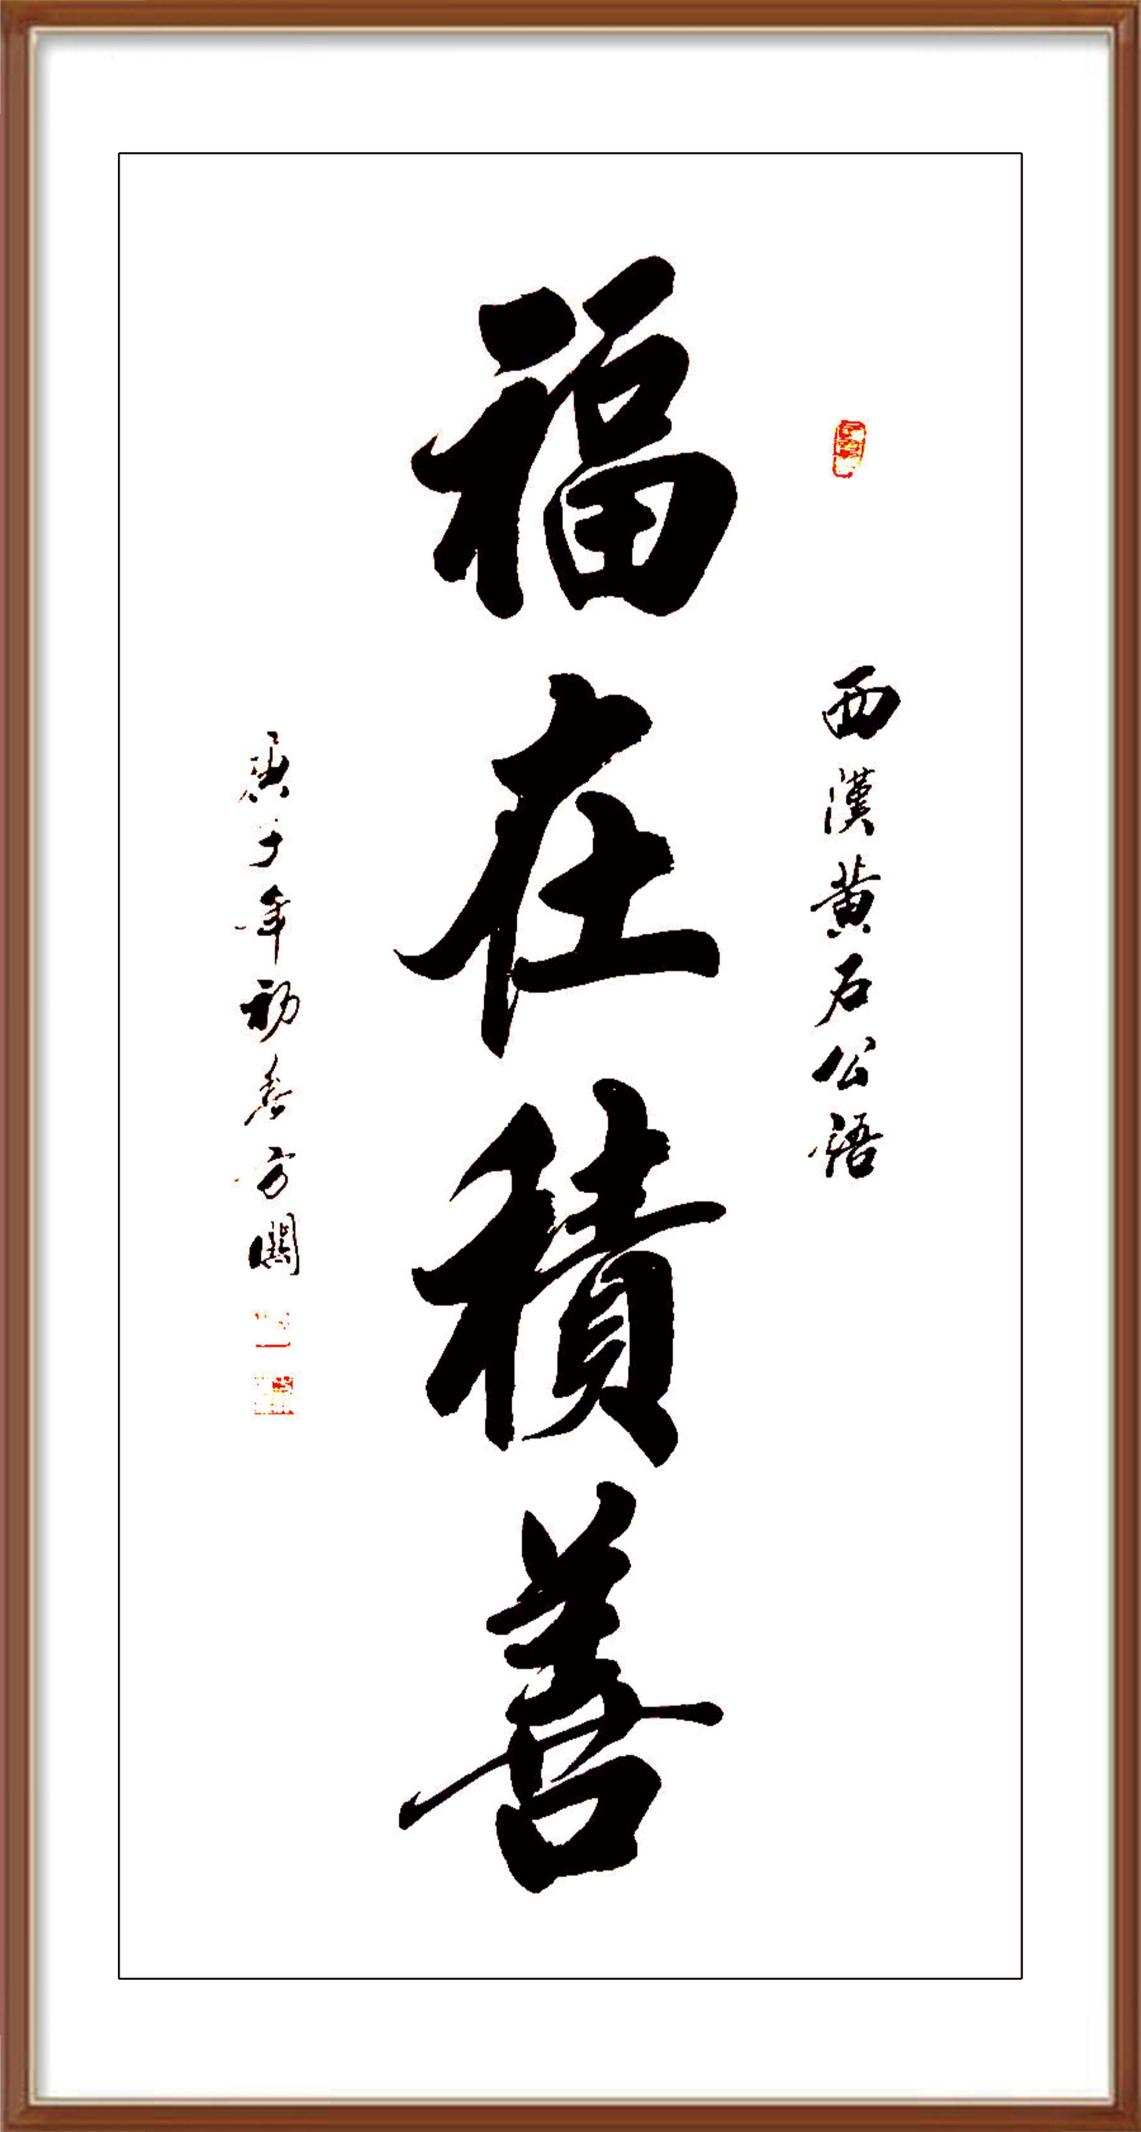 西漢黄石公語
福在積善
庚子年初春方闖